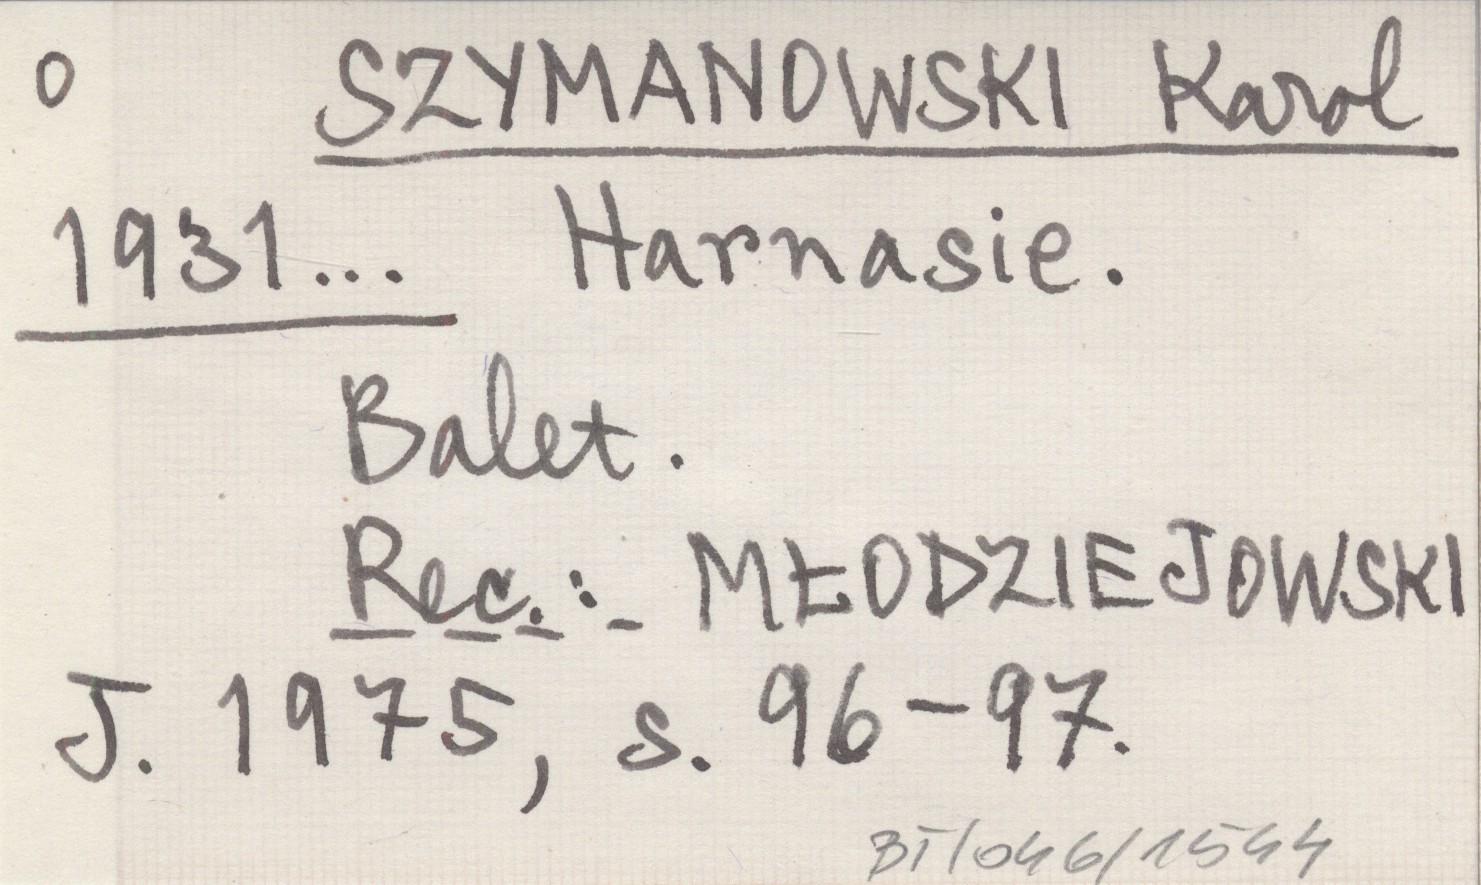 o SZYMANOWSKI Karol
1931... Harnasie.
Balet.
Rec.: MŁODZIEJOWSKI
J. 1975, s. 96-97.
BT/046/1544